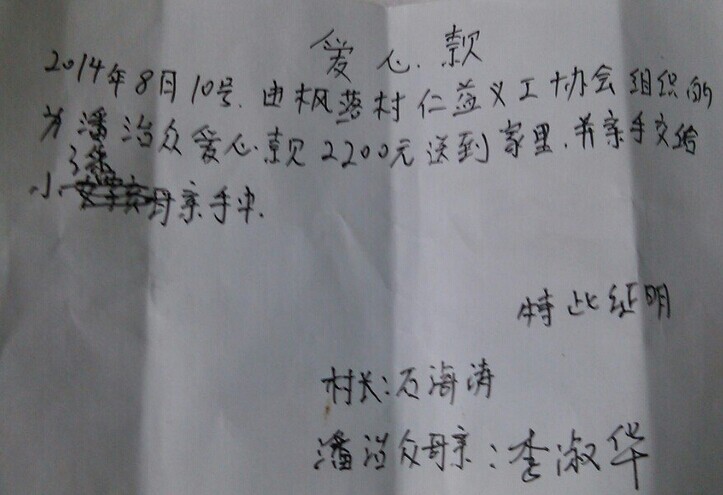 爱心款
2014年8月10号.由枫落村仁益义工协会组织的
为潘治众爱心款2200元送到家里.并亲手交给
小 母亲手中.
特此证明
村长:石海涛
潘治众母亲:李淑华